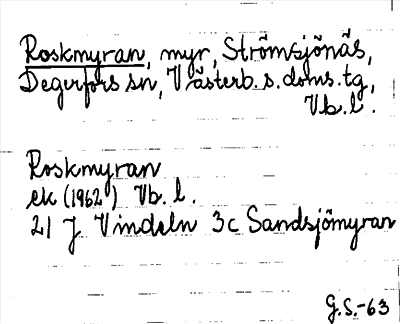 Roskmyran, myr, Strömsjönäs,
Degerfors sn, Västerb. s. doms. tg,
Vb. l.
Roskmyran
ek (1962) Vb. l.
21 J Vindeln 3c Sandsjömyran
G.S.-63